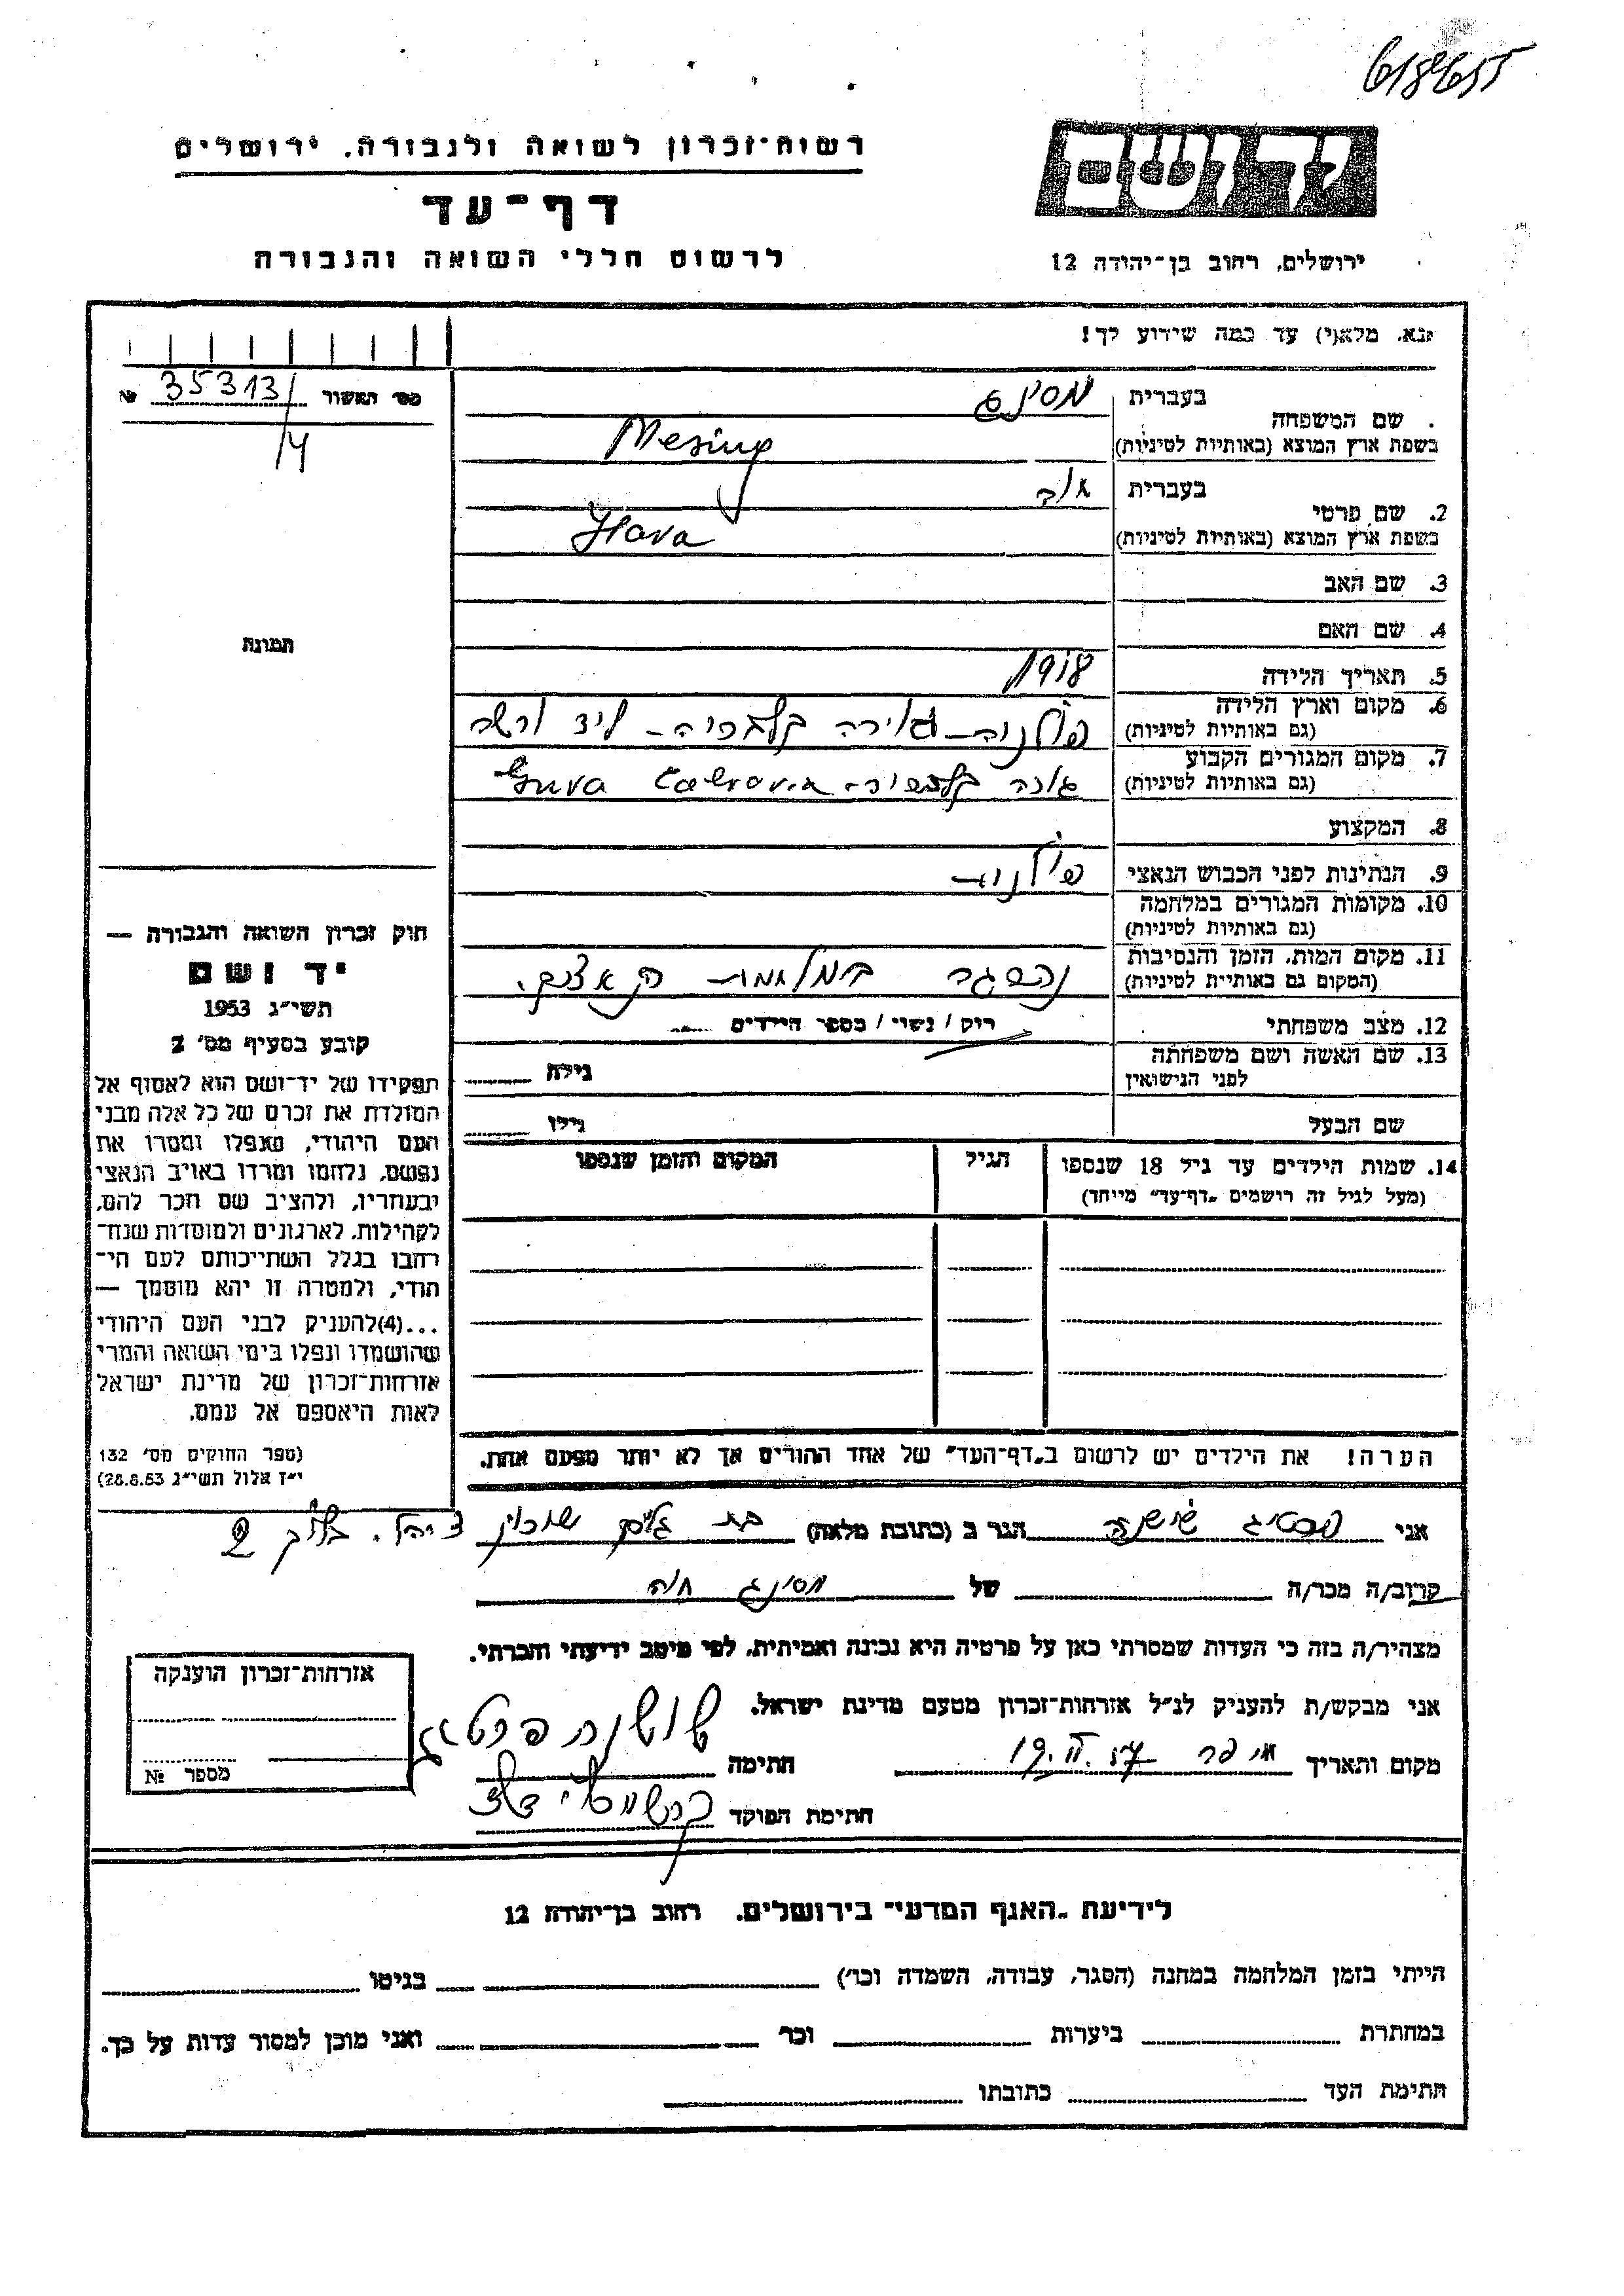 618655
רשות־זכרון לשואה ולגבורה, ירושלים
דף־עד
לרשום חללי השואה והגבורה
ידושם
ירושלים, רחוב בן־יהודה 12
נא. מלא(י) עד כמה שידוע לך!
מס' האשור № 35313/
4
תמונה
שם המשפחה
בעברית
בשפת ארץ המוצא (באותיות לטיניות)
Mesing
2. שם פרטי
בעברית חוה
בשפת ארץ המוצא (באותיות לטיניות)
Hava
3. שם האב
4. שם האם
5. תאריך הלידה 1918
6. מקום וארץ הלידה
(גם באותיות לטיניות)
ליד ורשה
7. מקום המגורים הקבוע
(גם באותיות לטיניות)
8. המקצוע
9. הנתינות לפני הכבוש הנאצי פולנית
10. מקומות המגורים במלחמה
(גם באותיות לטיניות)
11. מקום המות, הזמן והנסיבות
(המקום גם באותיית לטיניות)
במלחמת
12. מצב משפחתי רוק / נשוי / מספר הילדים
13. שם האשה ושם משפחתה
לפני הנישואין
גילה
שם הבעל גילו
14. שמות הילדים עד גיל 18 שנספו
(מעל לגיל זה רושמים „דף־עד" מייחד)
הגיל
המקום והזמן שנספו
הערה! את הילדים יש לרשום ב„דף־העד" של אחד ההורים אך לא יותר מפעם אחת.
חוק זכרון השואה והגבורה —
יד ושם
תשי״ג 1953
קובע בסעיף מס' 2
תפקידו של יד־ושם הוא לאסוף אל
המולדת את זכרם של כל אלה מבני
העם היהודי, שנפלו ומסרו את
נפשם, נלחמו ומרדו באויב הנאצי
ובעוזריו, ולהציב שם וזכר להם,
לקהילות, לארגונים ולמוסדות שנח־
רבו בגלל השתייכותם לעם הי־
הודי, ולמטרה זו יהא מוסמך —
...(4)להעניק לבני העם היהודי
שהושמדו ונפלו בימי השואה והמרי
אזרחות־זכרון של מדינת ישראל
לאות היאספם אל עמם.
(ספר החוקים מס' 132
י״ז אלול תשי״ג 28.8.53)
אני שושנה הגר ב (כתובת מלאה) בת גלים שיכון בלוק 2
קרוב/ה מכר/ה של מסינג חוה
מצהיר/ה בזה כי העדות שמסרתי כאן על פרטיה היא נכונה ואמיתית, לפי מיטב ידיעתי והכרתי.
אני מבקש/ת להעניק לנ״ל אזרחות־זכרון מטעם מדינת ישראל.
מקום ותאריך חיפה 19.II.57 חתימה שושנה
חתימת הפוקד
אזרחות־זכרון הוענקה
מספר №
לידיעת „האגף המדעי" בירושלים, רחוב בן־יהודה 12
הייתי בזמן המלחמה במחנה (הסגר, עבודה, השמדה וכו') בגיטו
במחתרת ביערות וכו' ואני מוכן למסור עדות על כך.
חתימת העד כתובתו